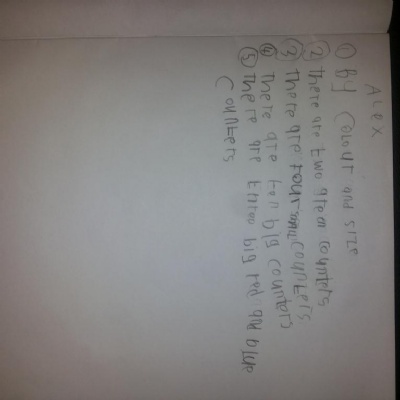 Alex
① By colour and size
② there are two green counters
③ there are four counters
④ there are ten big counters
⑤ there are big red and blue
counters